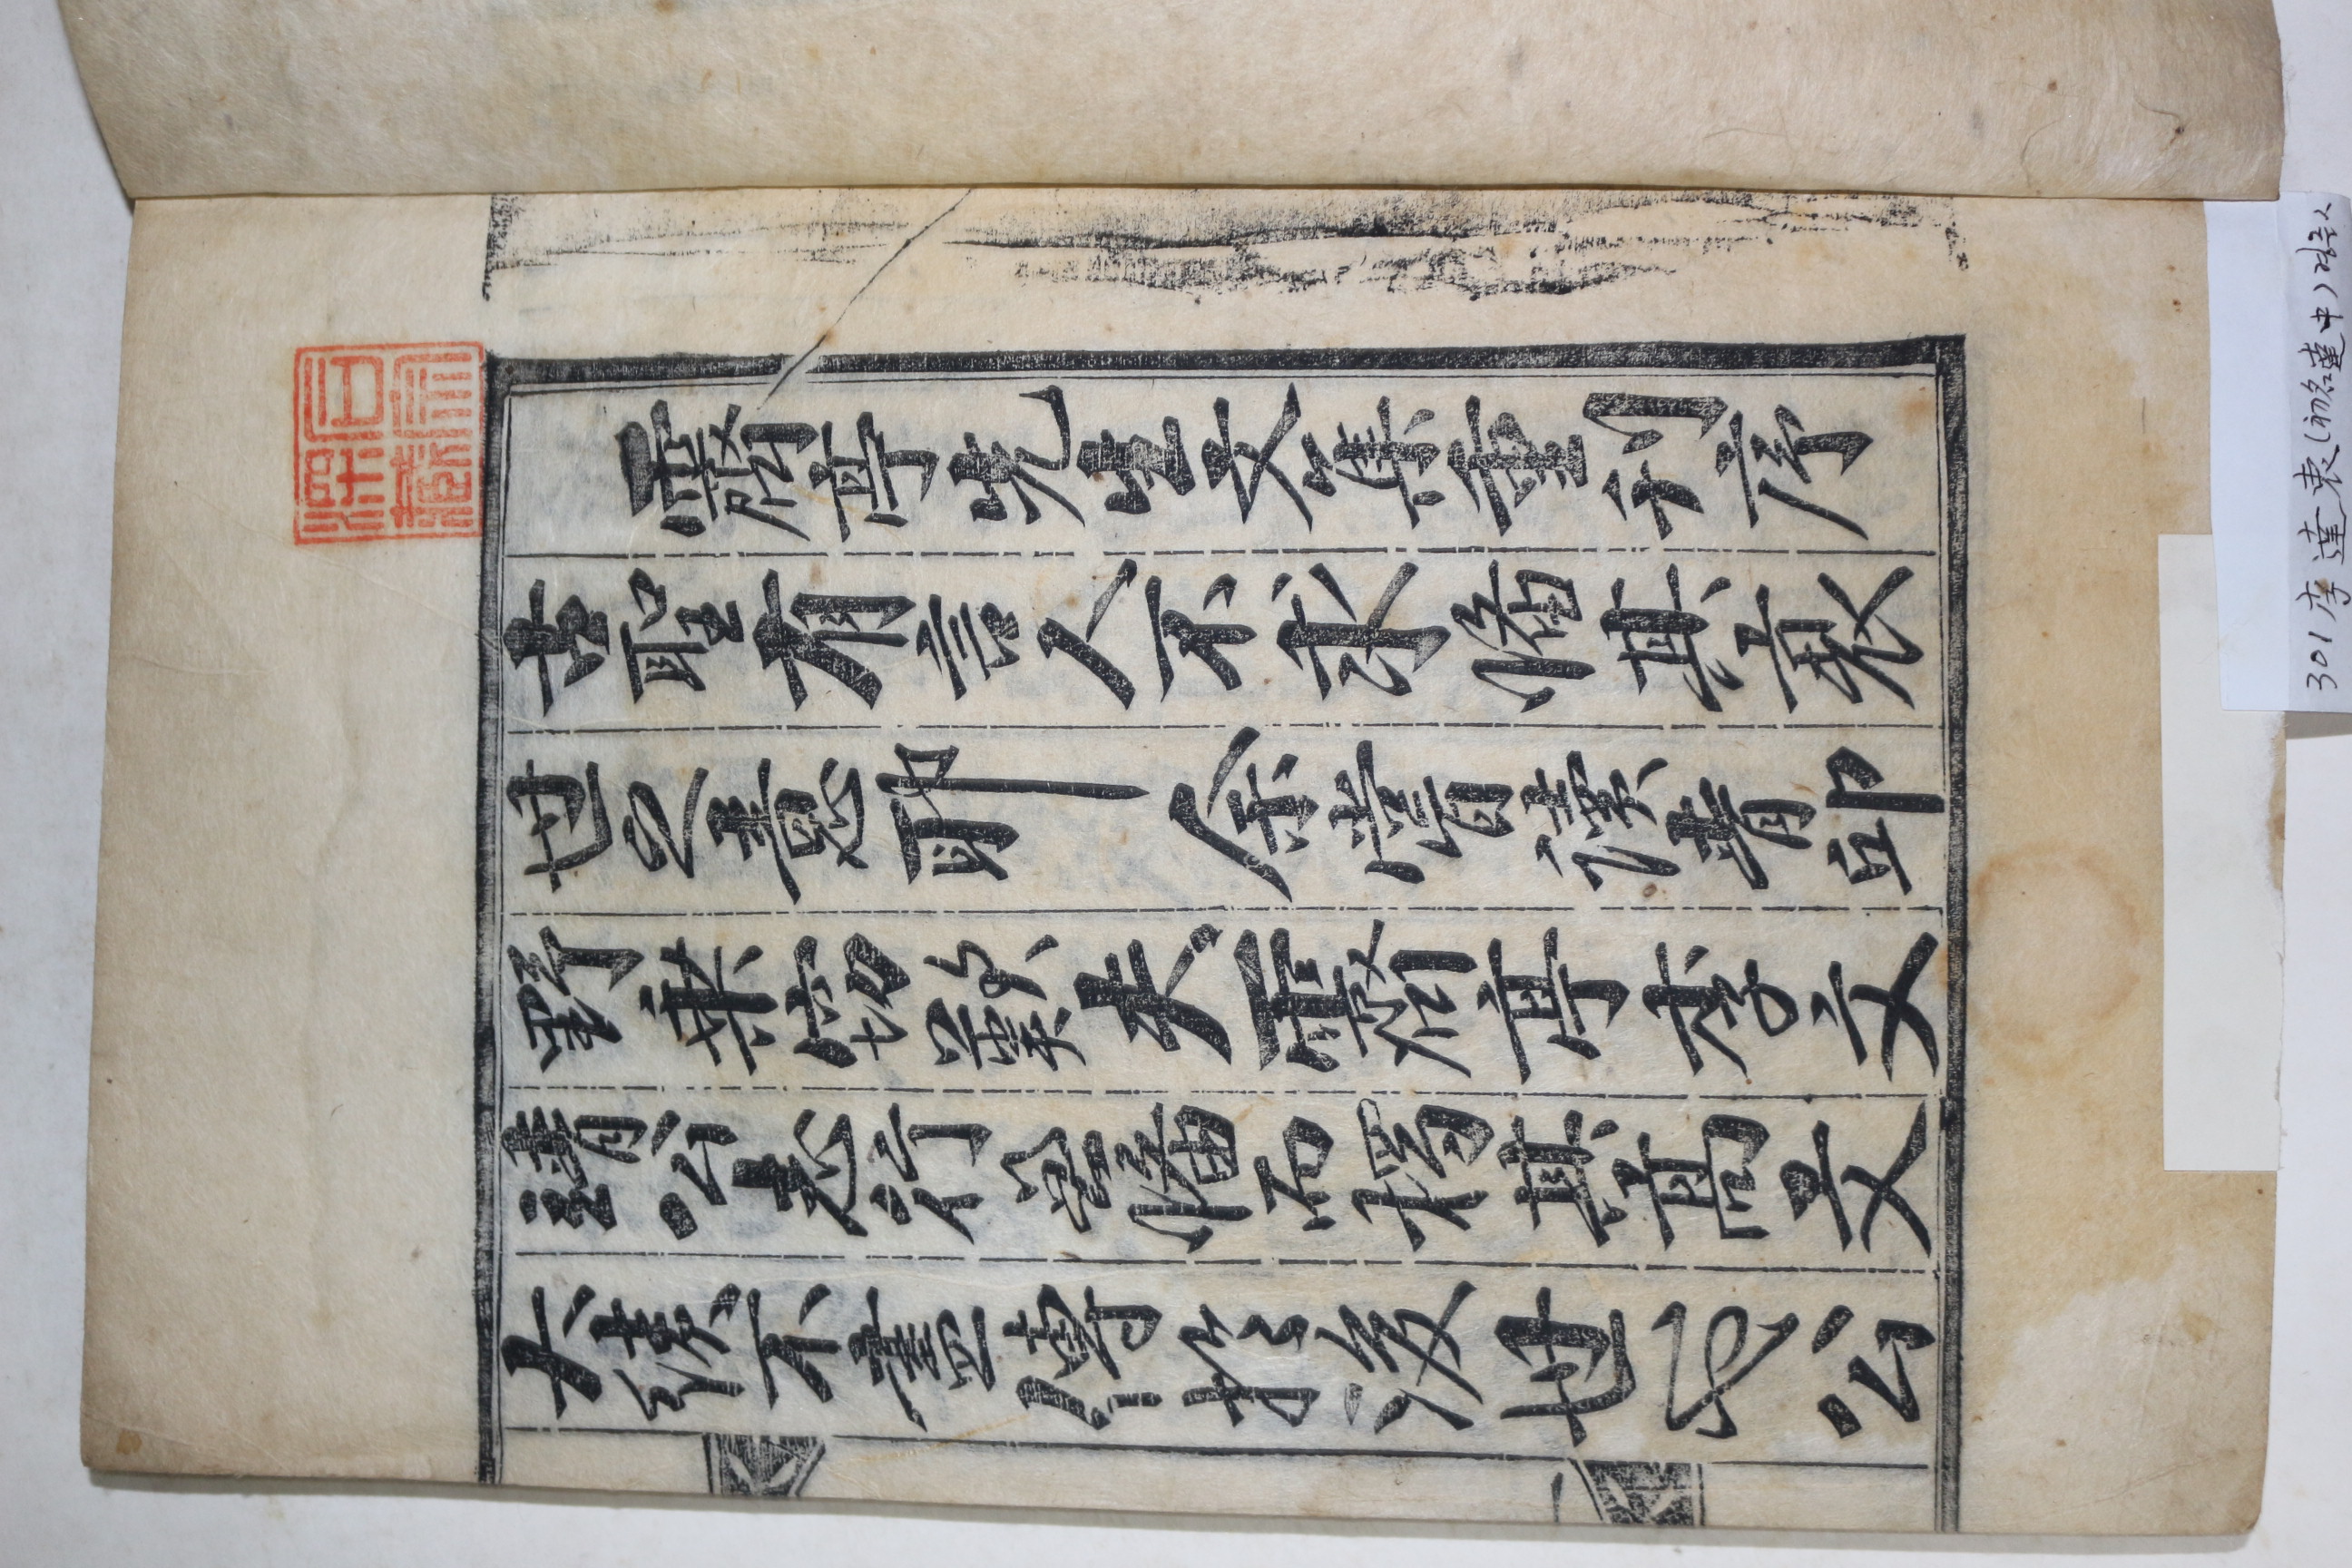 霽亭先生文集重刊序
古聖有言人不求俻其衰
世之意耶余嘗讀靑邱
野乘窃歎夫霽亭李文
靖公志行俻而獨其髙文
大績不盡傳於後世也公
宗
深藏
301 李達衷(初名達中) 경주人